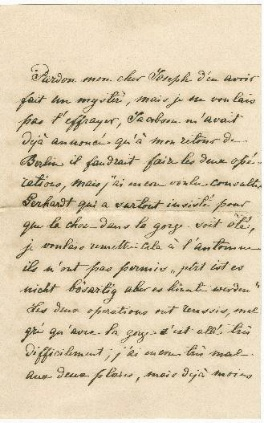 Pardon mon cher Joseph d'en avoir
fait un mystère, mais je ne voulais
pas t'effrayer, Jacobson m'avait
déjà annoncé qu'à mon retour de
Berlin il faudrait faire les deux opé-
rations, mais j'ai encore voulu consulter
Gerhardt qui a surtout insisté pour
que la chose dans la gorge soit ôté,
je voulais remettre cela à l'automne
ils n'ont pas permis, jetzt ist es
nicht bösartig aber es könnte werden"
Les deux opérations ont reussis, mal
gré qu'avec la gorge c'est allé très
difficilement; j'ai encore très mal
aux deux plaies, mais déjà moins